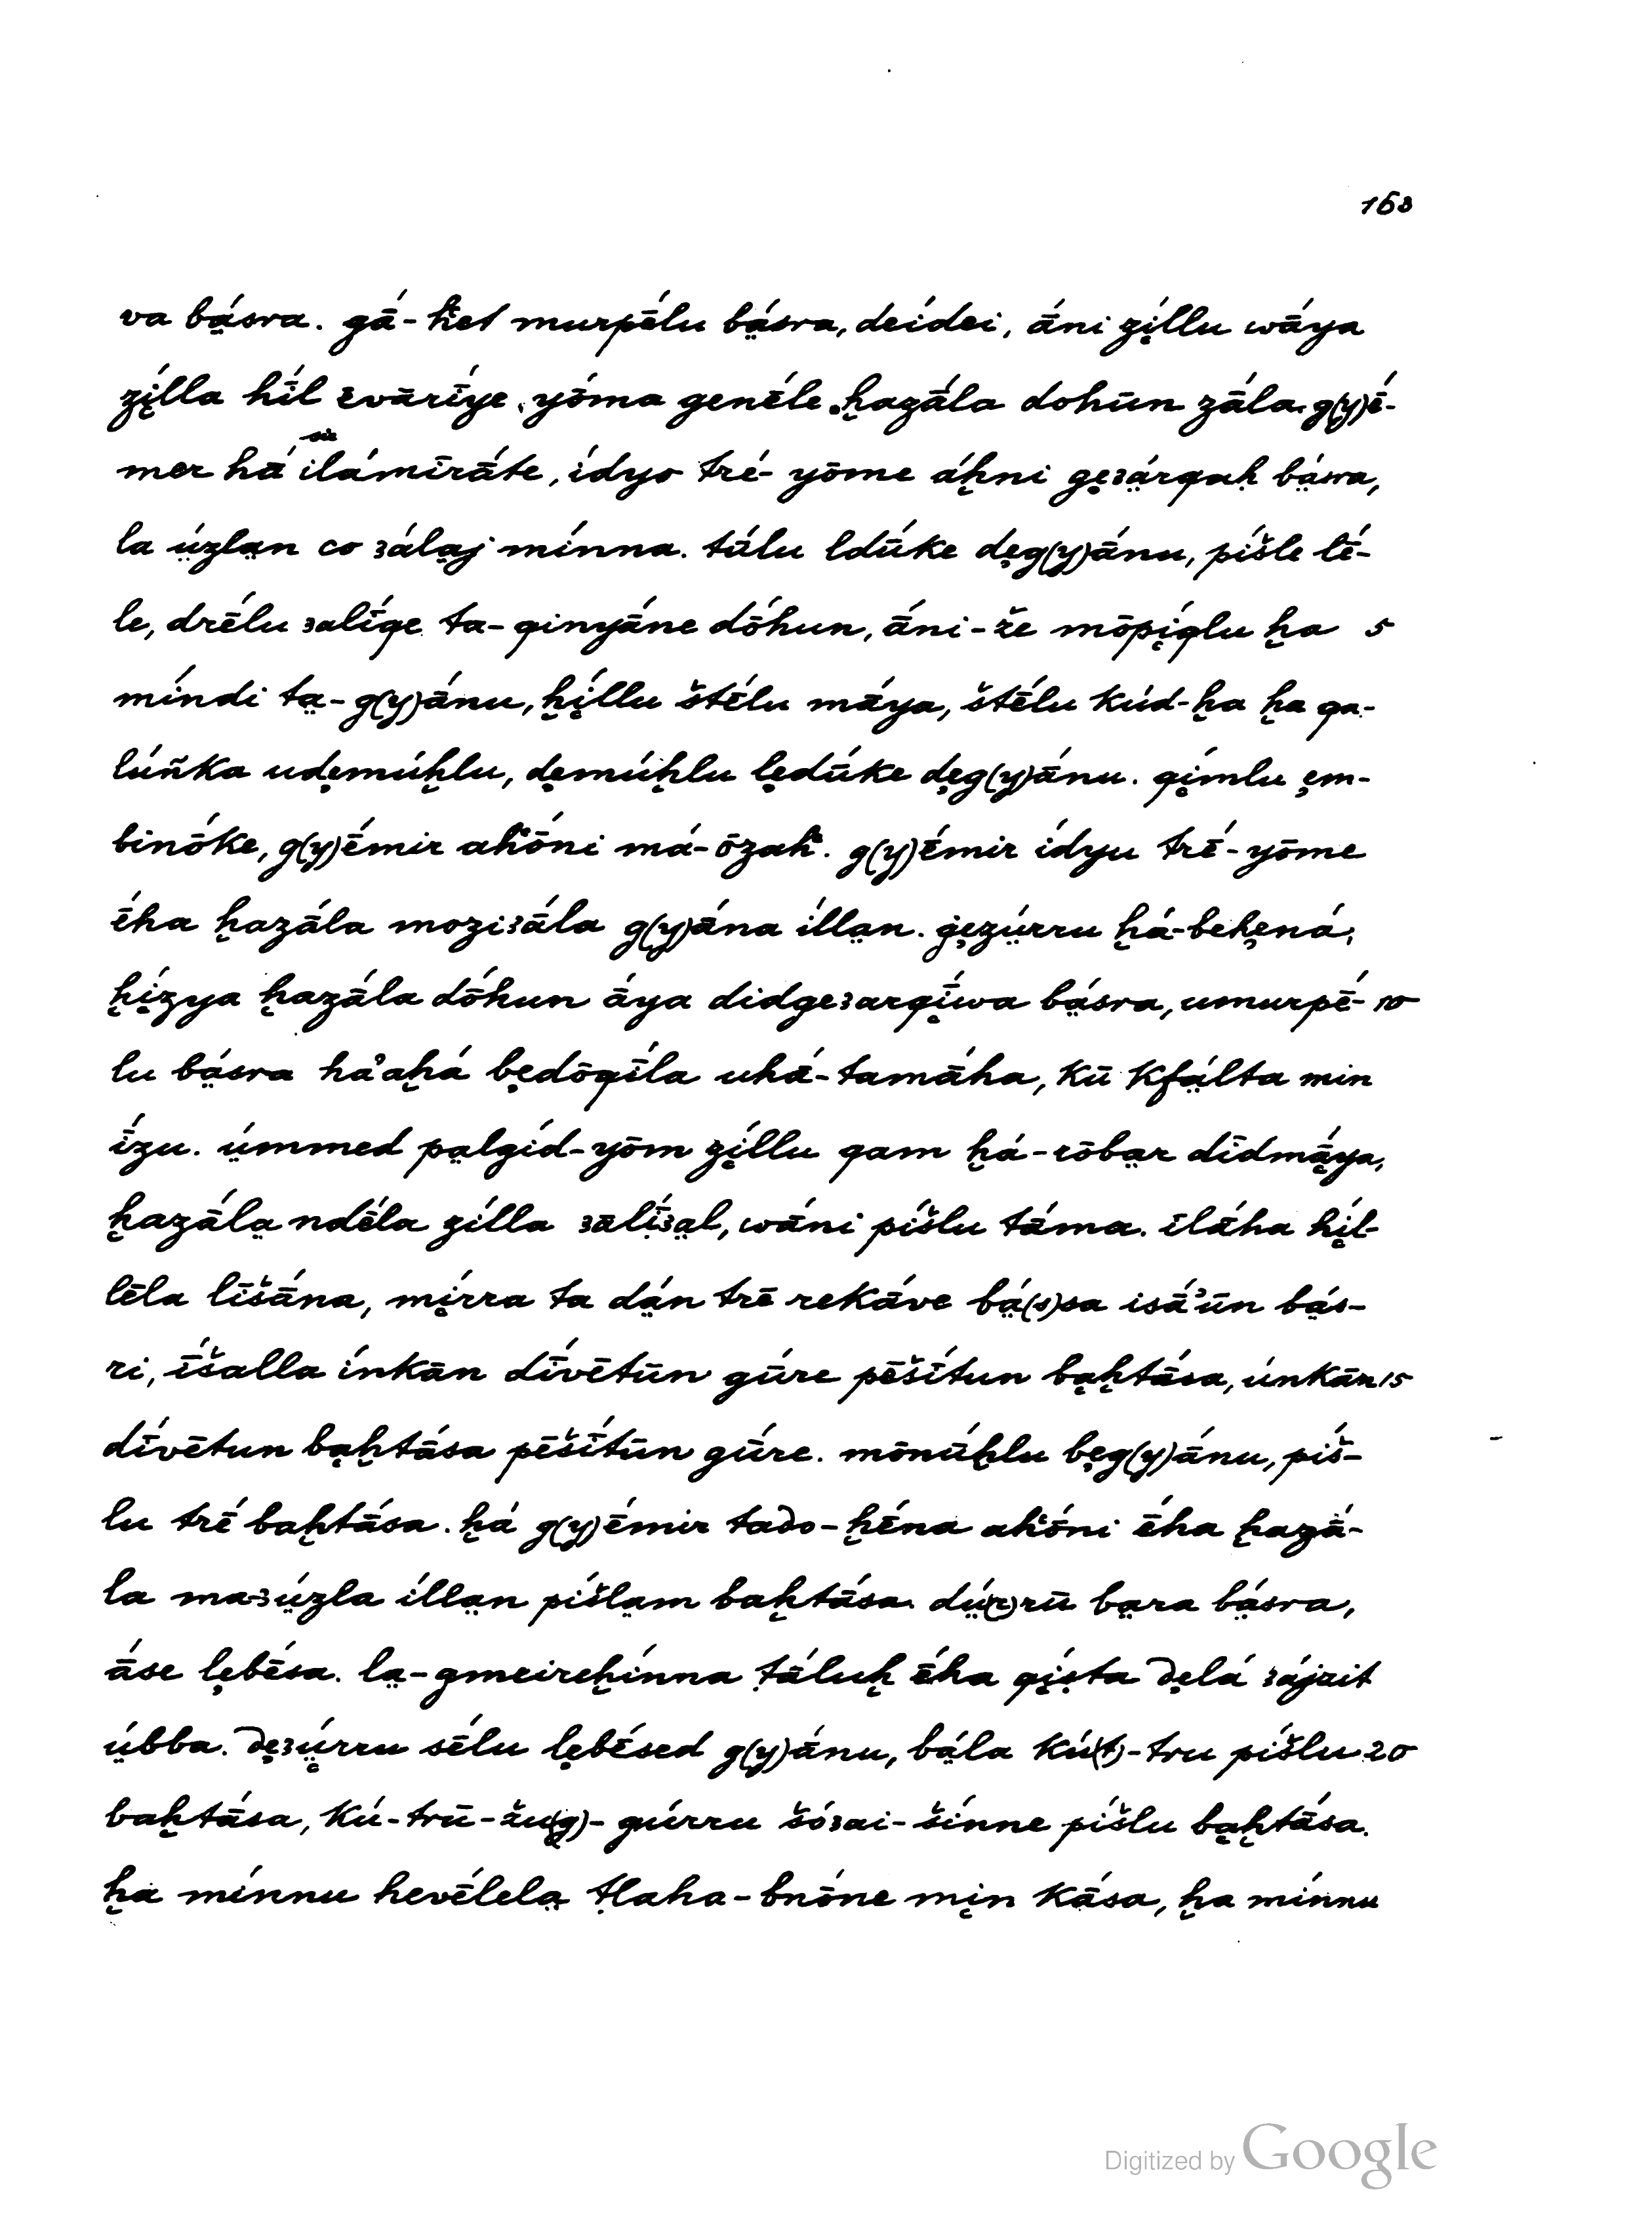 168
va bä́sra. gā́-ḣel murpḗlu bä́sra, deídei, ā́ni zí̯llu wāya
zí̯lla hīl ēvārī́ye, yōma genḗle. ḫazā́la dohūn zā́la. g(y)ḗ-
mer hā́ ilámīrā́te, ídyo tré-yōme áḫni gȩʒä́rqaḫ bä́sra,
la ǘzlan co ʒálaj mínna. tū́lu ldū́ke dȩg(y)ā́nu, píšle lḗ-
le, drḗlu ʒalī́qe ta-qinyā́ne dṓhun, ā́ni-že mōpí̯qlu ḫa 5
míndi ta̤-g(y)ā́nu, ḫí̯llu štḗlu mā́ya, štḗlu kúd-ḫa ḫa qa-
lúñka udȩmúḫlu, dȩmúḫlu lȩdū́ke dȩg(y)ānu. qí̯mlu ȩm-
binṓke, g(y)ḗmir aḣṓni má-ōzaḣ. g(y)ḗmir ídyu trḗ-yōme
ḗha ḫazā́la moziʒā́la g(y)ā́na íllan. ġȩzǘrru ḫá-beḫȩná,
ḫí̯zya ḫazā́la dṓhun ā́ya didgeʒarqī́wa bä́sra, umurpḗ- 10
lu bä́sra há'aḫá bȩdōqī́la uhā́-tamā́ha, kū kfä́lta min
ī́zu. ǘmmed pa̤lgíd-yōm zí̯llu qam ḫá-rōba̤r dīdmā́ya,
ḫazā́la̤ ndḗla zílla ʒālī́ʒa̤l, wāni píšlu tā́ma. īlā́ha hí̯l-
lēla līšā́na, mí̯rra ta dä́n trē rekā́ve bä́(s)sa isā́'ūn bä́s-
ri, ī́šalla ínkān dī́vētūn gū́re pēšī́tun ba̯ḫtā́sa, únkān 15
dī́vētun ba̯ḫtā́sa pēšī́tūn gū́re. mōnū́ḫlu bȩg(y)ā́nu, píš-
lu trḗ baḫtā́sa. ḫá g(y)ḗmir tado-ḫḗna aḣṓni ḗha ḫazā́-
la maʒǘzla íllan píšla̤m baḫtā́sa. dǘ(r)rū ba̤ra bä́sra,
ā́se lȩbḗsa. la̤-gmeireḫínna ṭā́luḫ ḗha qí̯ṣta δȩlá ʒájzit
ǘbba. δȩʒǘrru sḗlu lȩbḗsed g(y)ā́nu, bä́la kú(t)-tru píšlu 20
baḫtā́sa, kú-trū-žu(g)-gúrru šóʒai-šínne píšlu ba̯ḫtā́sa.
ḫa mínnu hevḗlela̤ ṭlaha-bnṓne mi̯n kā́sa, ḫa mínnu
Digitized by Google